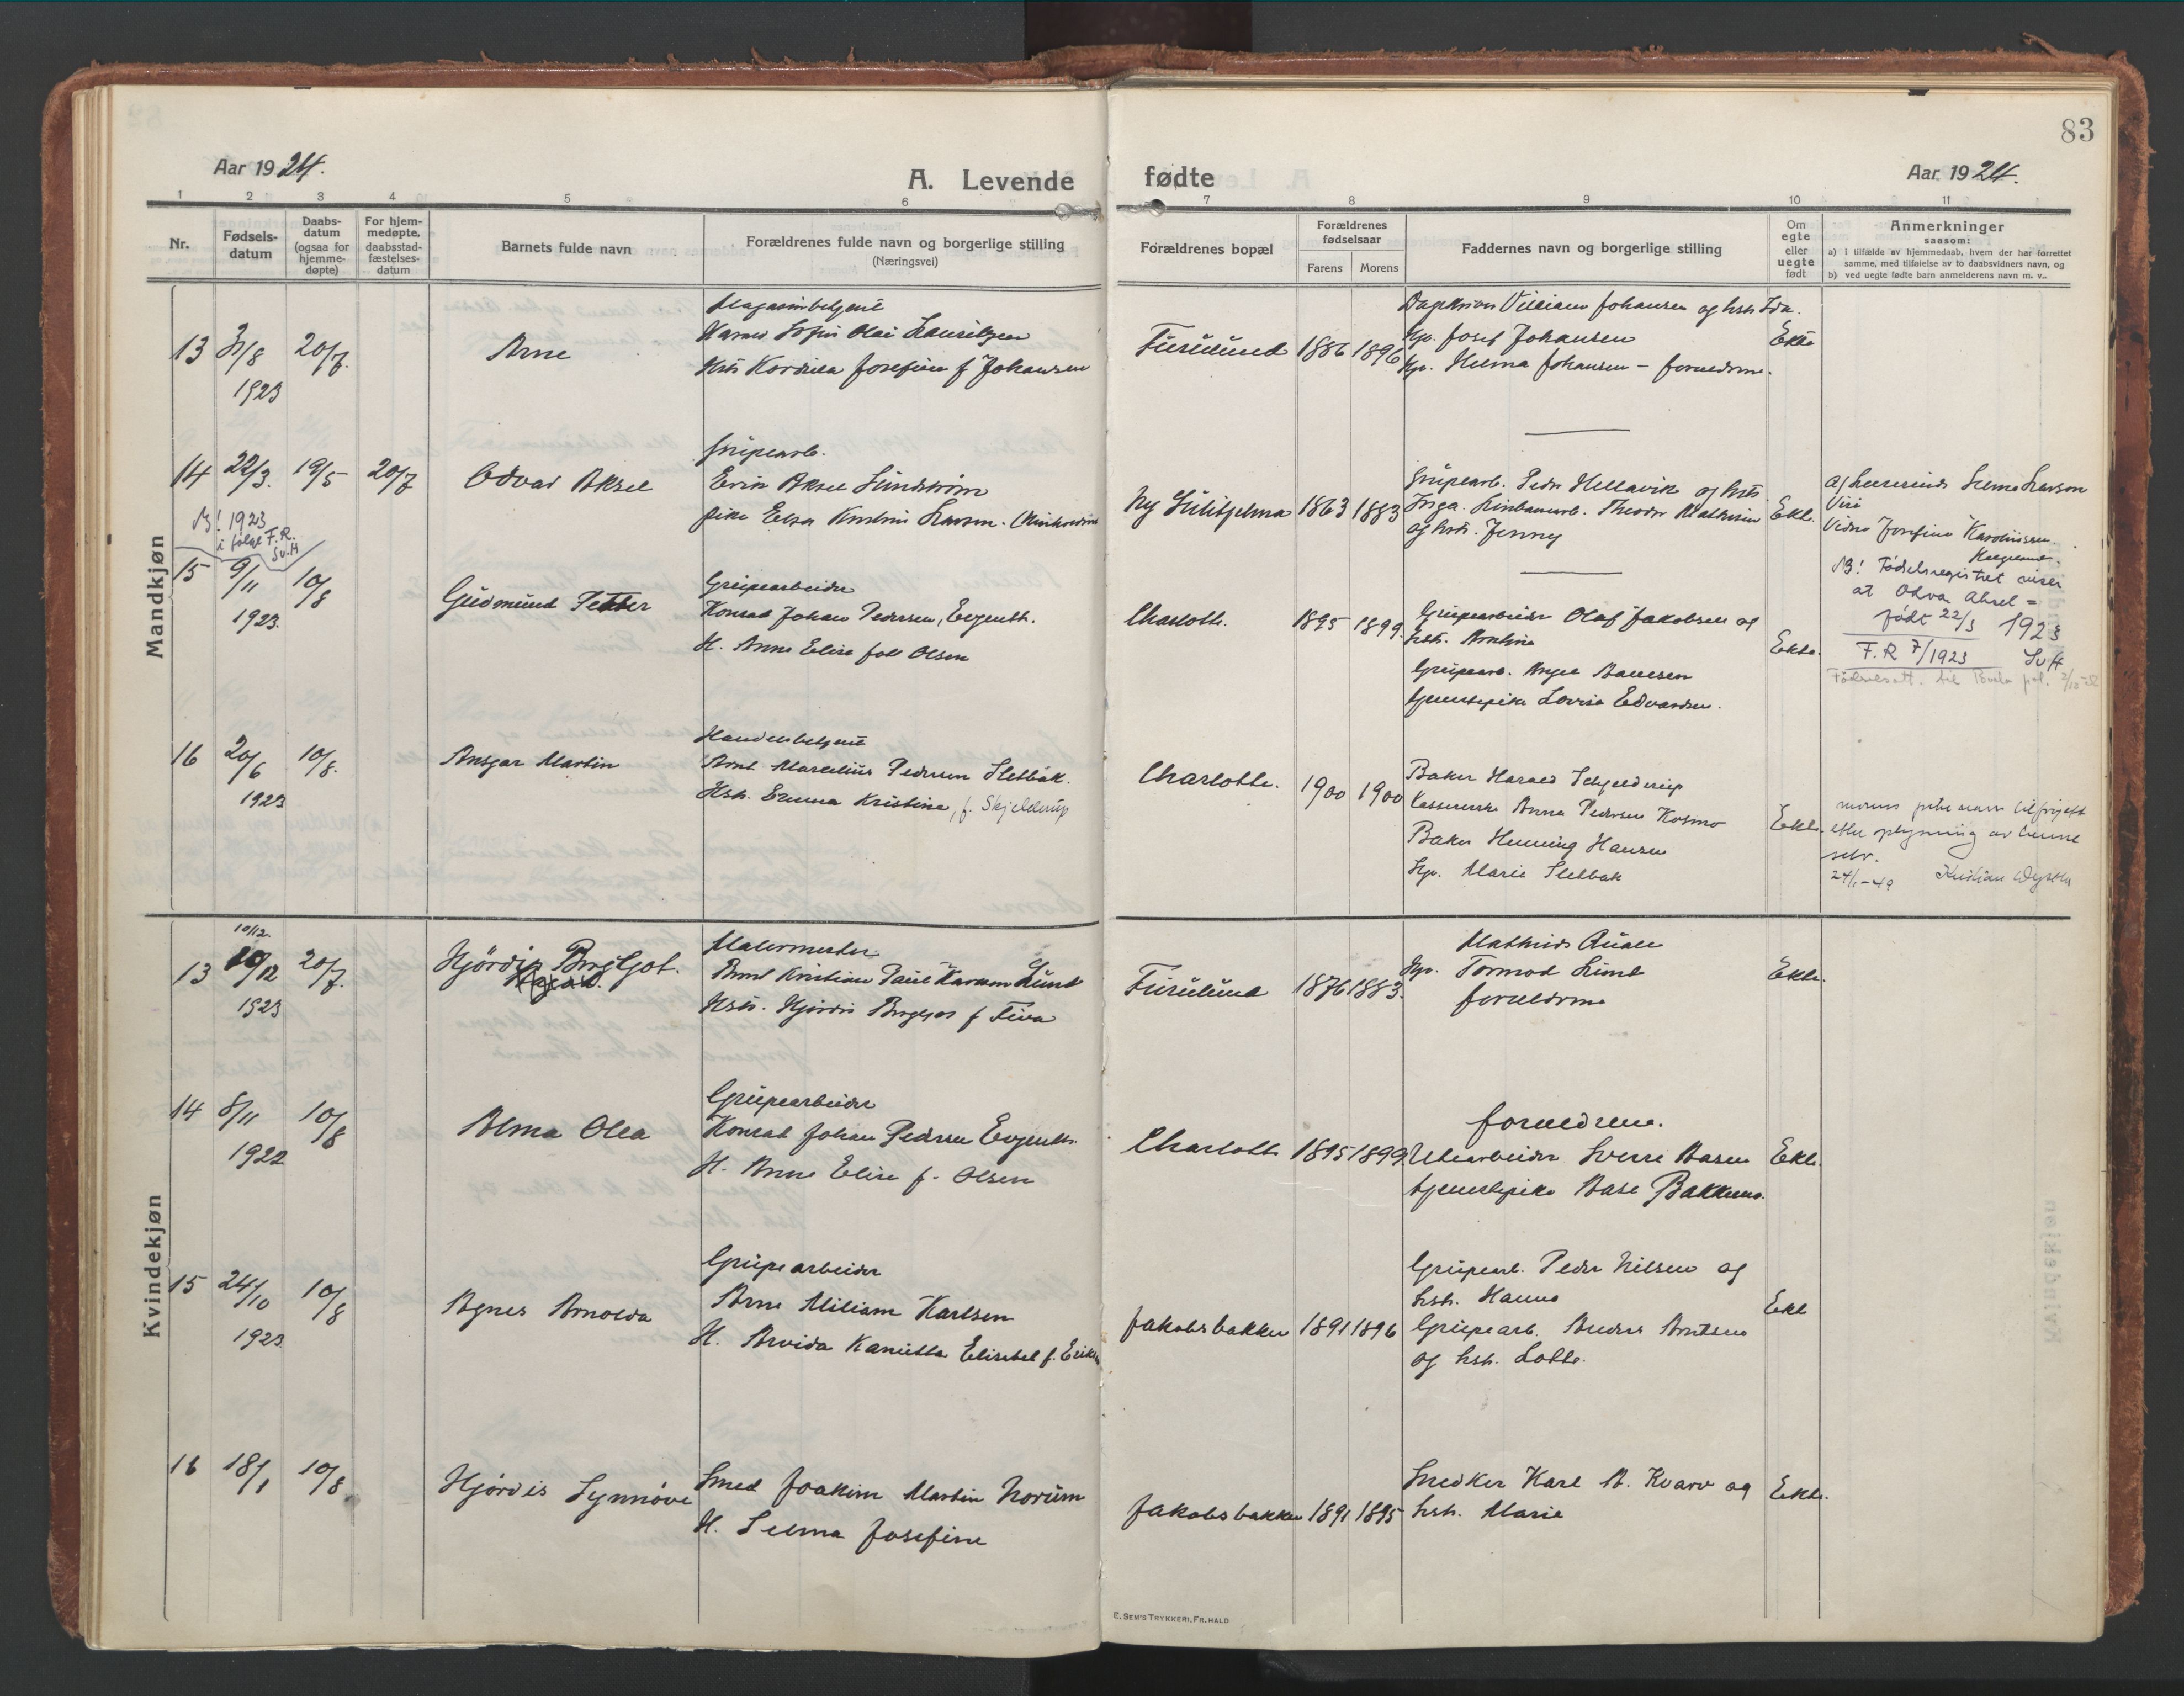 83
Aar 1924.
A. Levende
fødte
Aar 1924.
1 2 3 4 5 6 7 8 9 10 11
Nr.
Fødsels-
datum
Daabs-
datum
(ogsaa for
hjemme-
døpte)
For hjem-
medøpte,
daabsstad-
fæstelses-
datum
Barnets fulde navn
Forældrenes fulde navn og borgerlige stilling
(Næringsvei)
Forældrenes bopæl
Forældrenes
fødselsaar
Farens Morens
Faddernes navn og borgerlige stilling
Om
egte
eller
uegte
født
Anmerkninger
saasom:
a) I tilfælde av hjemmedaab, hvem der har forrettet
samme, med tilføielse av to daabsvidners navn, og
b) ved uegte fødte barn anmelderens navn m. v..
Mandkjøn
13 31/8 20/7.
1923
Arne
Magasinbetjent
Harald Sofus Olai Lauritzen
Hstr Kordula Josefine f Johansen
Furulund 1886 1896
Villiam Johansen og hstr Ida.
Gp. Josef Johansen
Gp. Helma Johansen - foreldrene.
Ekte
14 22/3. 19/5 20/7
B! 1923
i følge F.R.
Sv.H
Odvar Aksel
Grupearb.
Erik Aksel Lundström
pike Elsa Kristine Larsen.
Ny Sulitjelma 1863 1883
Grupearb. Peder Hellavik og hstr.
Inga. Theodor Mathisen
og hstr. Jenny
Ekte.
Selma Larson
Vidne Josefine Karolinssen.
B! Fødselsregistret viser
at Odvar Aksel =
født 22/3 1923
F.R 7/1923 Sv H
Fødselsatt. til
15 9/11 10/8
1923.
Gudmund Petter
Grupearbeider
Konrad Johan Pedersen, Evjenth.
H. Anne Elise født Olsen
Charlotte. 1895 1899.
Grupearbeider Olaf Jakobsen og
hstr. Arntine
Grupearb. Angel Paulsen
tjenestepike Lovise Edvardsen.
Ekte.
16 20/6 10/8.
1923
Ansgar Martin
Handelsbetjent
Arnt Marelius Pedersen Sletbak.
Hstr. Emma Kristine, f. Skjelderup
Charlotte. 1900 1900
Baker Harald Schjelderup
Kassererske Anna Pedersen Kosmo
Baker Henning Hansen
Gp. Marie Sletbak
Ekte.
morens pikenavn tilføyet
etter oplysning av henne
selv.
24/1-49 Kristian
Kvindekjøn
10/12.
13 10/12 20/7.
1923
Hjördis Bergljot.
Malermester
Arnt Kristian Paul Karmon Lund
Hstr. Hjördis Bergljot f
Furulund 1876 1883.
Mathias
Gp. Tormod Lund
foreldrene
Ekte.
14 8/11 10/8
1922
Alma Olea
Grupearbeider
Konrad Johan Pedersen Evjenth.
H. Anne Elise f. Olsen
Charlotte 1895 1899
foreldrene.
Utearbeider Sverre Basen
tjenestepike Aase Bakkemo.
Ekte.
15 24/10 10/8
1923.
Agnes Arnolda
Grupearbeider
Arne Miliam Karlsen
H. Arvida Kamilla Elisebet f. Eriksen
Jakobsbakken 1891 1896
Grupearb. Peder Nilsen og
hstr. Hanna
Grupearb. Anders Arntsen
og hstr. Lotte.
Ekte
16 18/1 10/8
Hjördis Synnöve
Smed Joakim Martin Norum
H. Selma Josefine
Jakobsbakken 1891 1895
Snedker Karl A. Kvarv og
hstr. Marie
Ekte.
E. SEM'S TRYKKERI, FR. HALD